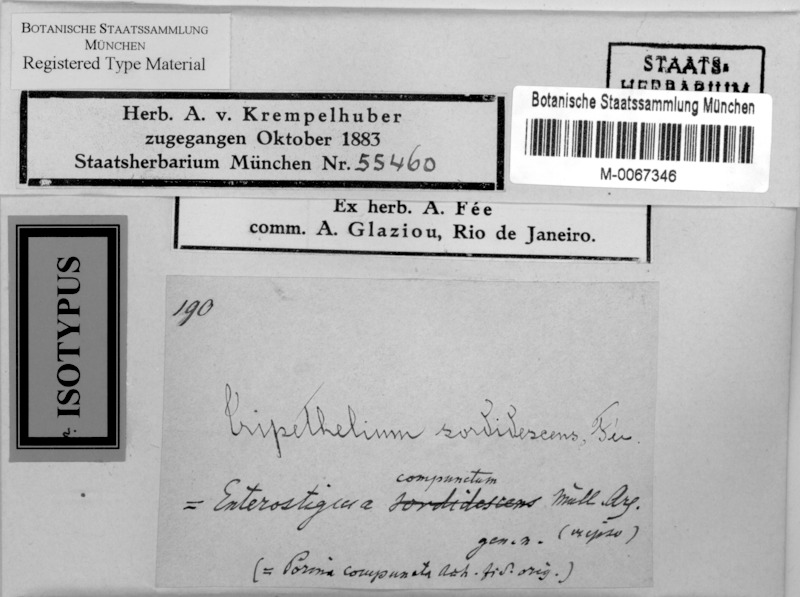 BOTANISCHE STAATSSAMMLUNG
MÜNCHEN
Registered Type Material
STAATS-
HERBARIUM
Herb. A. v. Krempelhuber
zugegangen Oktober 1883
Staatsherbarium München Nr. 55460
Botanische Staatssammlung München
M-0067346
Ex herb. A. Fée
comm. A. Glaziou, Rio de Janeiro.
ISOTYPUS
190
Tripethelium sordidescens, Fée.
compunctum
= Enterostigma sordidescens Müll. Arg.
gen. n. (in ipso)
(= Porina compuncta Ach. fid. orig.)